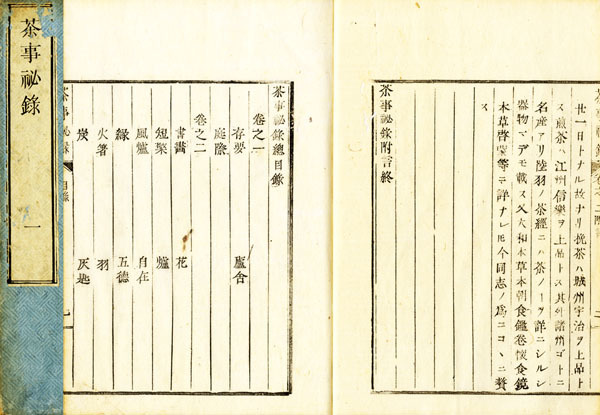 茶事祕錄 一
廿一日トナル故ナリ挽茶ハ城州宇治ヲ上品ト
ス煎茶ハ江州信樂ヲ上品トス其外諸州ゴトニ
名産アリ陸羽ノ茶經ニハ茶ノヿヲ詳ニシルシ
器物マデモ載ス又大和本草本朝食鑑卷懷食鏡
本草啓蒙等ニ詳ナレ𪜈今同志ノ爲ニコヽニ贅
ス
茶事祕錄附言終
茶事祕錄總目錄
卷之一
存要 廬舎
庭際
卷之二
書畵 花
短檠 爐
風爐 自在
緣 五德
火箸 羽
炭 灰匙
茶事祕錄 目錄